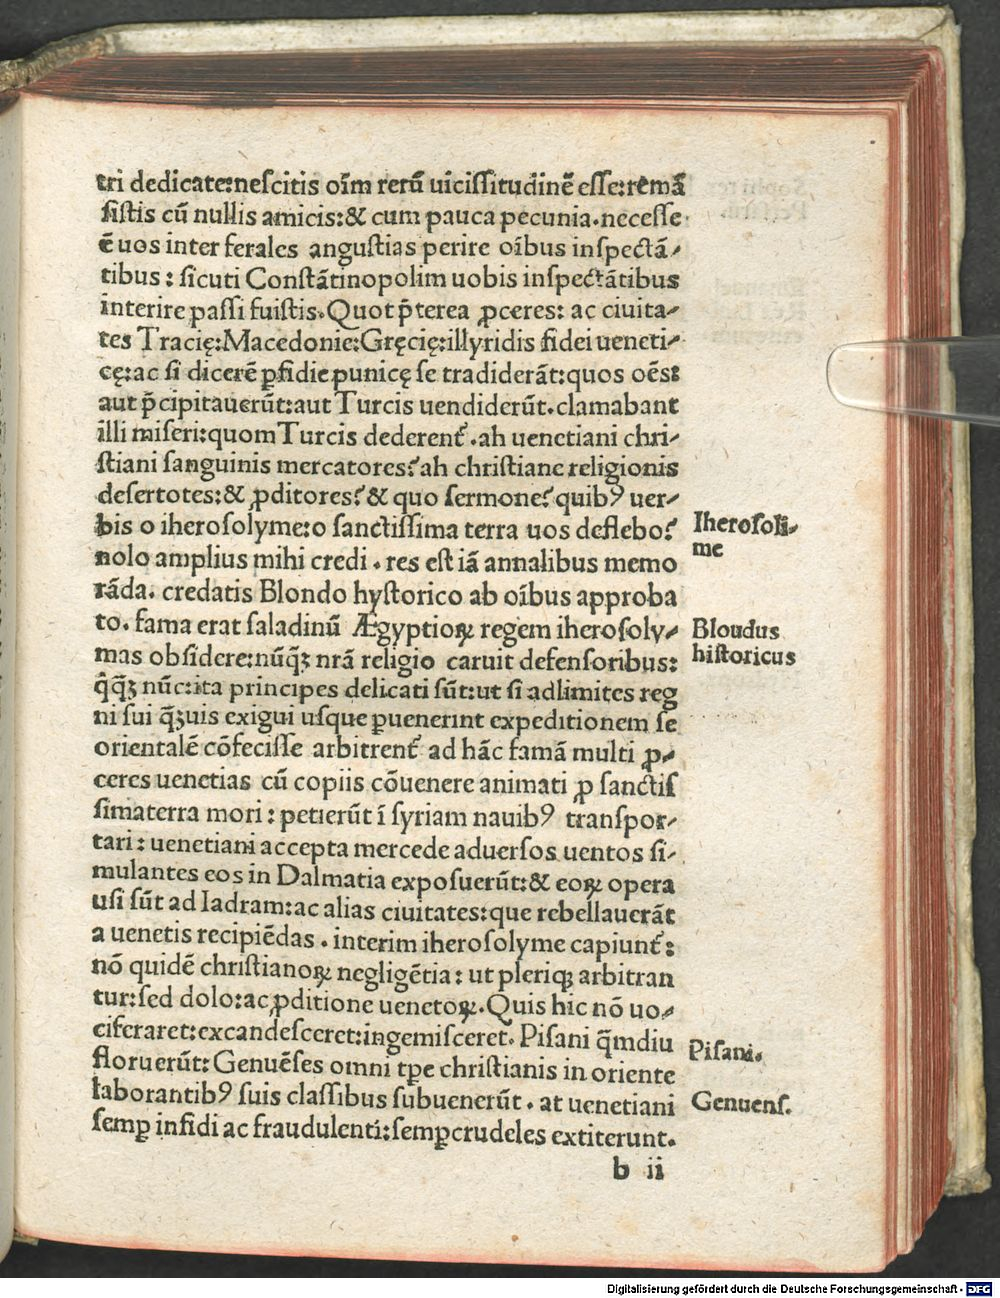 tri dedicate:nescitis oīm rerū uicissitudinē esse:remā
sistis cū nullis amicis:& cum pauca pecunia.necesse
ē uos inter ferales angustias perire oībus inspectā-
tibus : sicuti Constātinopolim uobis inspectātibus
interire passi fuistis.Quot p̄terea ꝓceres: ac ciuita-
tes Tracię:Macedonie:Gręcię:illyridis fidei ueneti-
cę:ac si dicerē ꝑfidie punicę se tradiderāt:quos oēs:
aut p̄cipitauerūt:aut Turcis uendiderūt.clamabant
illi miseri:quom Turcis dederent᷑ .ah uenetiani chri-
stiani sanguinis mercatores?ah christiane religionis
desertotes:& ꝓditores?& quo sermone?quibꝰ uer-
bis o iherosolyme:o sanctissima terra uos deflebo?
nolo amplius mihi credi . res est iā annalibus memo
rāda. credatis Blondo hystorico ab oībus approba
to. fama erat saladinū Ægyptioꝝ regem iherosoly-
mas obsidere:nūq̄ꝫ nr̄a religio caruit defensoribus:
q̄q̄ꝫ nūc:ita principes delicati sūt:ut si adlimites reg
ni sui q̄ꝫuis exigui usque ꝑuenerint expeditionem se
orientalē cōfecisse arbitrent᷑ ad hāc famā multi ꝓ-
ceres uenetias cū copiis cōuenere animati ꝓ sanctis
simaterra mori : petierūt ī syriam nauibꝰ transpor-
tari : uenetiani accepta mercede aduersos uentos si-
mulantes eos in Dalmatia exposuerūt:& eoꝝ opera
usi sūt ad Iadram:ac alias ciuitates:que rebellauerāt
a uenetis recipiēdas . interim iherosolyme capiunt᷑ :
nō quidē christianoꝝ negligētia : ut pleriqꝫ arbitran
tur:sed dolo:ac ꝓditione uenetoꝝ. Quis hic nō uo-
ciferaret:excandesceret:ingemisceret. Pisani q̄mdiu
floruerūt: Genuēses omni tꝑe christianis in oriente
laborantibꝰ suis classibus subuenerūt . at uenetiani
semꝑ infidi ac fraudulenti:semꝑcrudeles extiterunt.
b ii
Iherosoli-
me
Bloudus
historicus
Pisani.
Genuens.
Digitalisierung gefördert durch die Deutsche Forschungsgemeinschaft - DFG